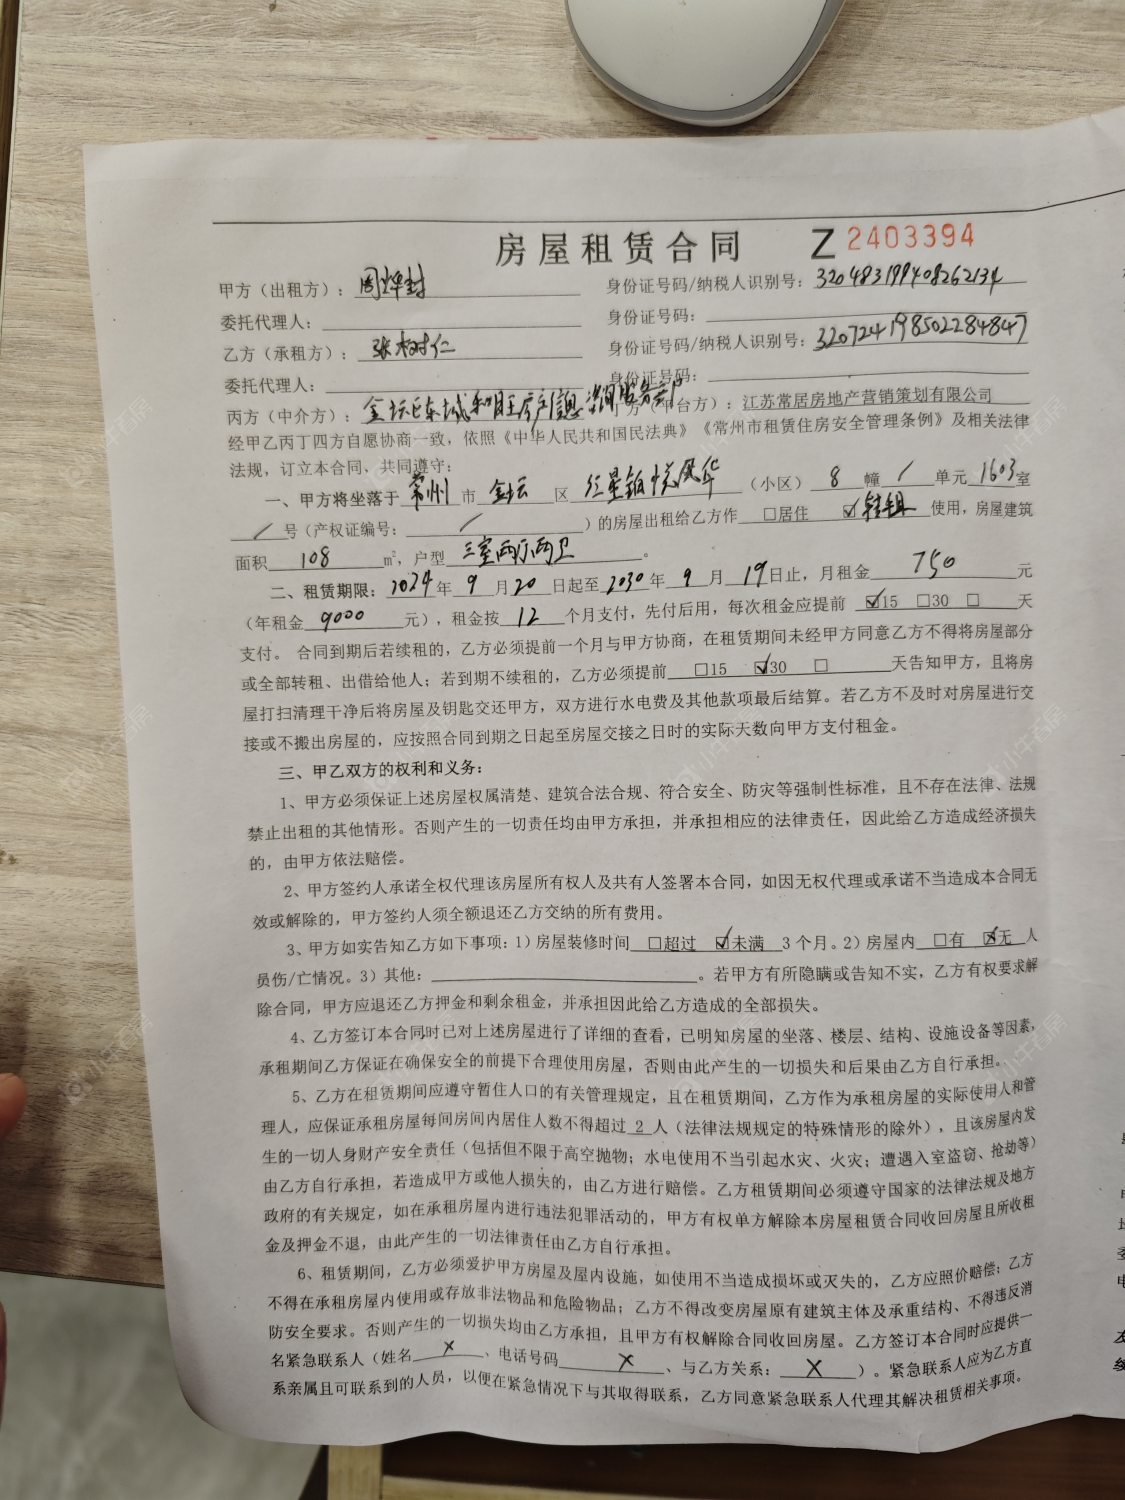 房屋租赁合同 Z 2403394
甲方（出租方）： 身份证号码/纳税人识别号：320483199408262134
委托代理人： 身份证号码：
乙方（承租方）：张树仁 身份证号码/纳税人识别号：320724198502284847
委托代理人： 身份证号码：
丙方（中介方）：金坛区东城和旺房产信息咨询服务部 丁方（平台方）：江苏常居房地产营销策划有限公司
经甲乙丙丁四方自愿协商一致，依照《中华人民共和国民法典》《常州市租赁住房安全管理条例》及相关法律
法规，订立本合同，共同遵守：
一、甲方将坐落于 常州 市 金坛 区 红星铂悦风华 （小区） 8 幢 / 单元 1603 室
/ 号（产权证编号： / ）的房屋出租给乙方作 □居住 ☑转租 使用，房屋建筑
面积 108 m²，户型 三室两厅两卫 。
二、租赁期限：2024 年 9 月 20 日起至 2030 年 9 月 19 日止，月租金 750 元
（年租金 9000 元），租金按 12 个月支付，先付后用，每次租金应提前 ☑15 □30 □ 天
支付。 合同到期后若续租的，乙方必须提前一个月与甲方协商，在租赁期间未经甲方同意乙方不得将房屋部分
或全部转租、出借给他人；若到期不续租的，乙方必须提前 □15 ☑30 □ 天告知甲方，且将房
屋打扫清理干净后将房屋及钥匙交还甲方，双方进行水电费及其他款项最后结算。若乙方不及时对房屋进行交
接或不搬出房屋的，应按照合同到期之日起至房屋交接之日时的实际天数向甲方支付租金。
三、甲乙双方的权利和义务：
1、甲方必须保证上述房屋权属清楚、建筑合法合规、符合安全、防灾等强制性标准，且不存在法律、法规
禁止出租的其他情形。否则产生的一切责任均由甲方承担，并承担相应的法律责任，因此给乙方造成经济损失
的，由甲方依法赔偿。
2、甲方签约人承诺全权代理该房屋所有权人及共有人签署本合同，如因无权代理或承诺不当造成本合同无
效或解除的，甲方签约人须全额退还乙方交纳的所有费用。
3、甲方如实告知乙方如下事项：1）房屋装修时间 □超过 ☑未满 3 个月。2）房屋内 □有 ☒无 人
员伤/亡情况。3）其他： 。若甲方有所隐瞒或告知不实，乙方有权要求解
除合同，甲方应退还乙方押金和剩余租金，并承担因此给乙方造成的全部损失。
4、乙方签订本合同时已对上述房屋进行了详细的查看，已明知房屋的坐落、楼层、结构、设施设备等因素，
承租期间乙方保证在确保安全的前提下合理使用房屋，否则由此产生的一切损失和后果由乙方自行承担。
5、乙方在租赁期间应遵守暂住人口的有关管理规定，且在租赁期间，乙方作为承租房屋的实际使用人和管
理人，应保证承租房屋每间房间内居住人数不得超过 2 人（法律法规规定的特殊情形的除外），且该房屋内发
生的一切人身财产安全责任（包括但不限于高空抛物；水电使用不当引起水灾、火灾；遭遇入室盗窃、抢劫等）
由乙方自行承担，若造成甲方或他人损失的，由乙方进行赔偿。乙方租赁期间必须遵守国家的法律法规及地方
政府的有关规定，如在承租房屋内进行违法犯罪活动的，甲方有权单方解除本房屋租赁合同收回房屋且所收租
金及押金不退，由此产生的一切法律责任由乙方自行承担。
6、租赁期间，乙方必须爱护甲方房屋及屋内设施，如使用不当造成损坏或灭失的，乙方应照价赔偿；乙方
不得在承租房屋内使用或存放非法物品和危险物品；乙方不得改变房屋原有建筑主体及承重结构、不得违反消
防安全要求。否则产生的一切损失均由乙方承担，且甲方有权解除合同收回房屋。乙方签订本合同时应提供一
名紧急联系人（姓名 X 、电话号码 X 、与乙方关系： X ）。紧急联系人应为乙方直
系亲属且可联系到的人员，以便在紧急情况下与其取得联系，乙方同意紧急联系人代理其解决租赁相关事项。